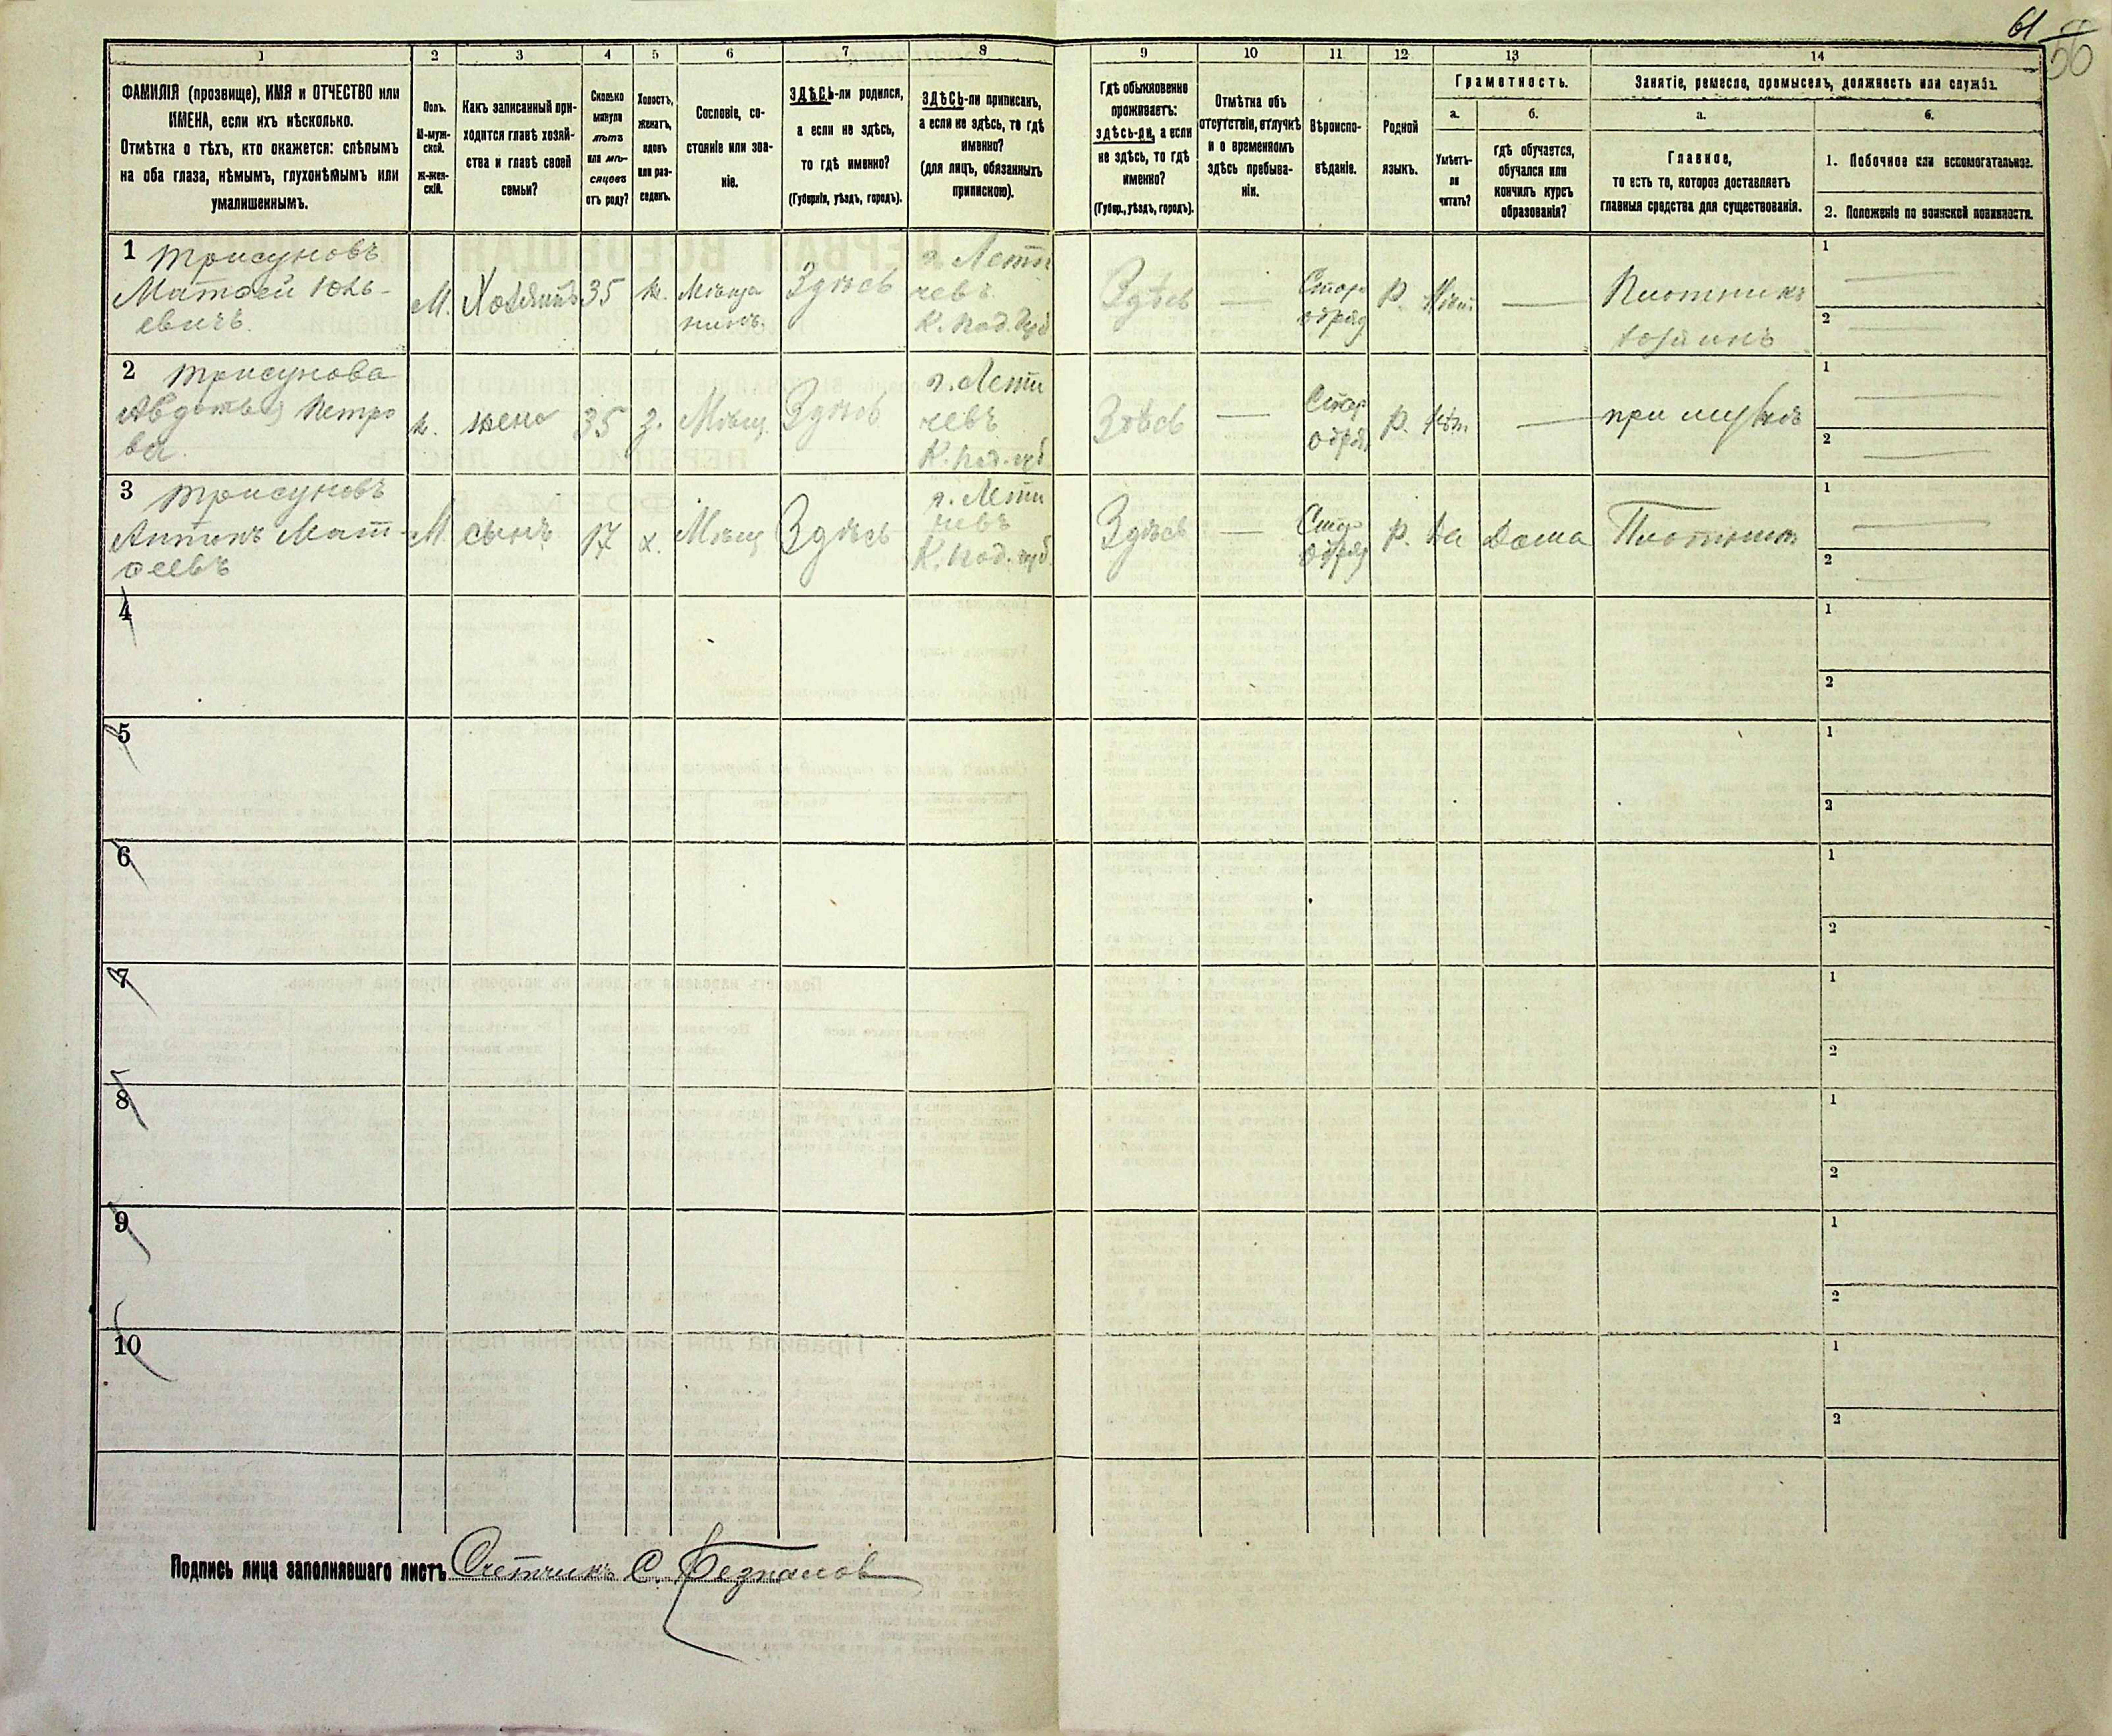 61
56
1
2
3
4
5
6
7
8
9
10
11
12
13
14
ФАМИЛІЯ (прозвище), ИМЯ и ОТЧЕСТВО или
ИМЕНА, если ихъ нѣсколько.
Отмѣтка о тѣхъ, кто окажется: слѣпымъ
на оба глаза, нѣмымъ, глухонѣмымъ или
умалишеннымъ.
Полъ.
М-муж-
ской.
Ж-жен-
скій.
Какъ записанный при-
ходится главѣ хозяй-
ства и главѣ своей
семьи?
Сколько
минуло
лѣтъ
или мѣ-
сяцевъ
отъ роду?
Холостъ,
женатъ,
вдовъ
или раз-
веденъ.
Сословіе, со-
стояніе или зва-
ніе.
ЗДѢСЬ-ли родился,
а если не здѣсь,
то гдѣ именно?
(Губернія, уѣздъ, городъ).
ЗДѢСЬ-ли приписанъ,
а если не здѣсь, то гдѣ
именно?
(для лицъ, обязанныхъ
припискою).
Гдѣ обыкновенно
проживаетъ:
здѣсь-ли, а если
не здѣсь, то гдѣ
именно?
(Губер., уѣздъ, городъ).
Отмѣтка объ
отсутствіи, отлучкѣ
и о временномъ
здѣсь пребыва-
ніи.
Вѣроиспо-
вѣданіе.
Родной
языкъ.
Грамотность.
а.
Умѣетъ-
ли
читать?
б.
гдѣ обучается,
обучался или
кончилъ курсъ
образованія?
Занятіе, ремесло, промыселъ, должность или служба.
а.
Главное,
то есть то, которое доставляетъ
главныя средства для существованія.
б.
1. Побочное или вспомогательное.
2. Положеніе по воинской повинности.
1 Трисуновъ
Матвей
евичъ.
М. Хозяинъ 35 ж. Мѣща
нинъ
Здѣсь
г. Лети
чевъ
К. Под. губ
Здѣсь —
Старо
обряд
Р. Нѣт —
Плотникъ
хозяинъ
1
2
2 Трисунова
Авдотья Петро
ва.
ж. жена 35 з. Мѣщ. Здѣсь
г. Лети
чевъ
К. Под. губ
Здѣсь —
Стар
обряд
Р. нѣт. — при мужѣ
1
2
3 Трисуновъ
Антонъ Мат-
веевъ
М. сынъ 17 х. Мѣщ Здѣсь
г. Лети
чевъ
К. Под. губ.
Здѣсь —
Старо
обряд
Р. да дома Плотникъ
1
2
4
1
2
5
1
2
6
1
2
7
1
2
8
1
2
9
1
2
10
1
2
Подпись лица заполнявшаго листъ Счетчикъ С.